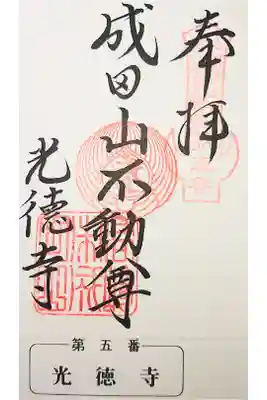 奉拝
成田山不動尊
光徳寺
第五番
光徳寺